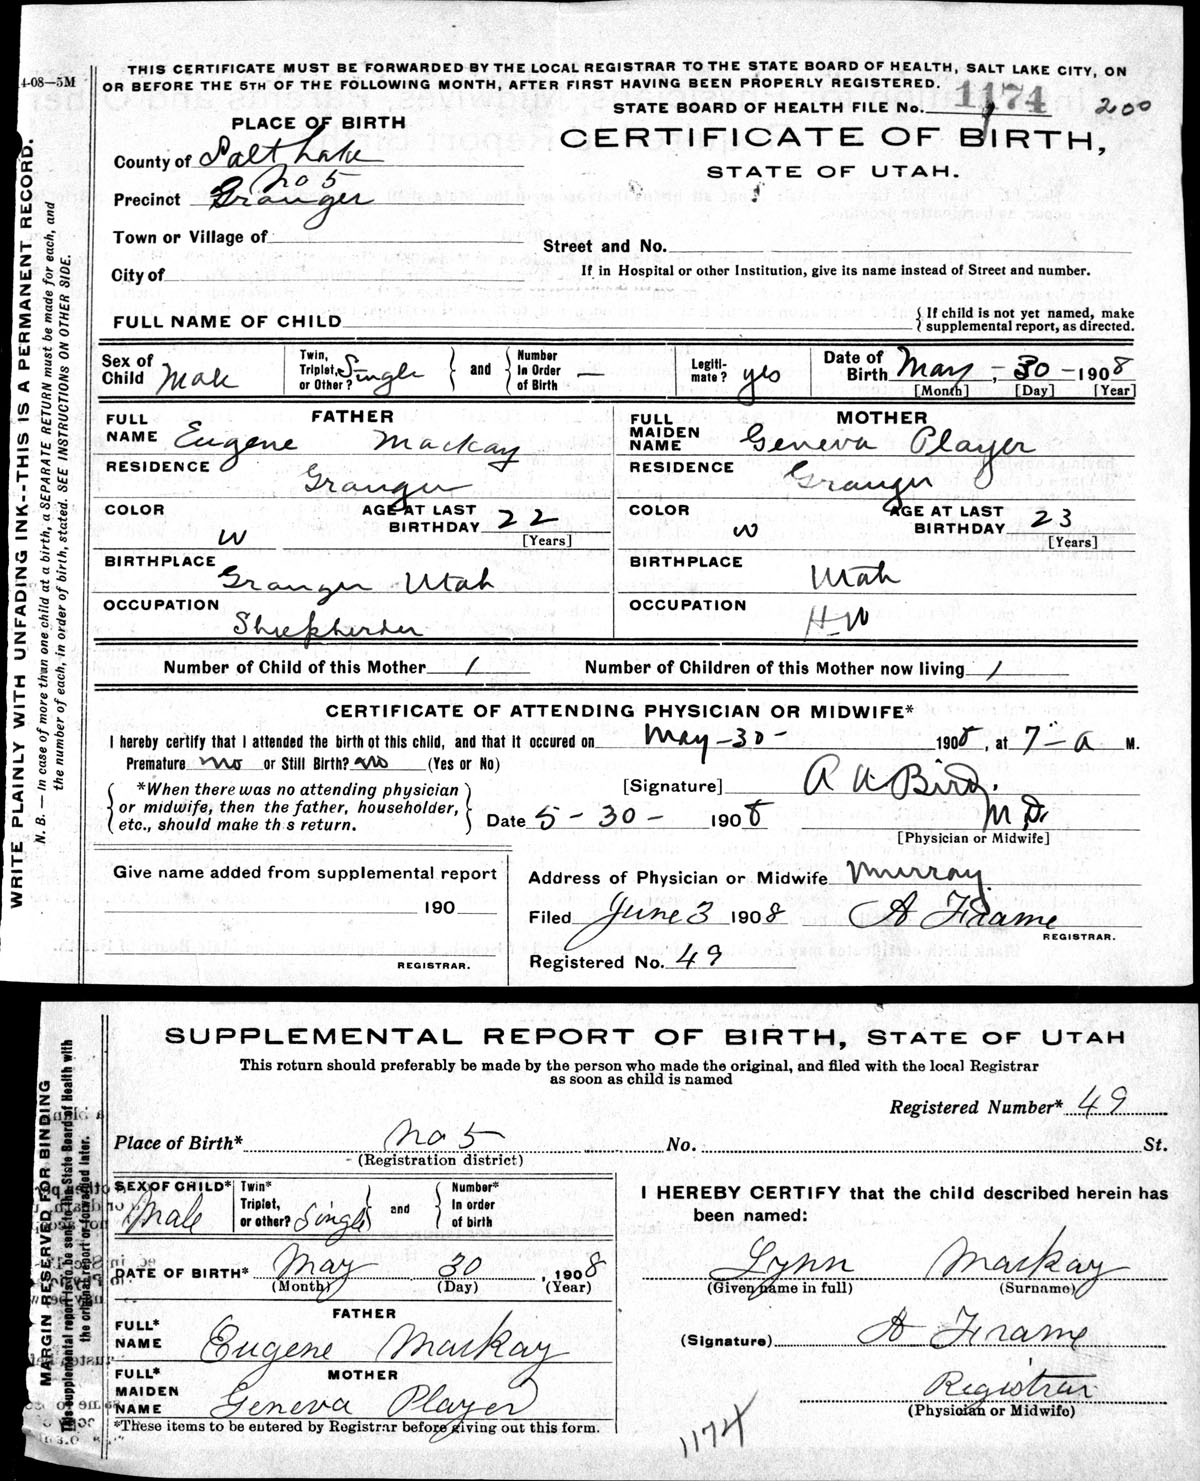 4-08—5M
THIS CERTIFICATE MUST BE FORWARDED BY THE LOCAL REGISTRAR TO THE STATE BOARD OF HEALTH, SALT LAKE CITY, ON
OR BEFORE THE 5TH OF THE FOLLOWING MONTH, AFTER FIRST HAVING BEEN PROPERLY REGISTERED.
STATE BOARD OF HEALTH FILE No. 1174 200
PLACE OF BIRTH
CERTIFICATE OF BIRTH,
STATE OF UTAH.
County of Salt Lake
no 5
Precinct Granger
Town or Village of
Street and No.
City of
If in Hospital or other Institution, give its name instead of Street and number.
FULL NAME OF CHILD { If child is not yet named, make
supplemental report, as directed.
Sex of Child Male Twin, Triplet, or Other? Single } and { Number In Order of Birth — Legiti-mate? yes Date of Birth May, - 30 - 1908
[Month] [Day] [Year]
FATHER MOTHER
FULL NAME Eugene Mackay FULL MAIDEN NAME Geneva Player
RESIDENCE Granger RESIDENCE Granger
COLOR W AGE AT LAST BIRTHDAY 22 [Years] COLOR W AGE AT LAST BIRTHDAY 23 [Years]
BIRTHPLACE Granger Utah BIRTHPLACE Utah
OCCUPATION Sheepherder OCCUPATION H-W
Number of Child of this Mother 1 Number of Children of this Mother now living 1
CERTIFICATE OF ATTENDING PHYSICIAN OR MIDWIFE*
I hereby certify that I attended the birth of this child, and that it occured on May-30- 1908, at 7-a M.
Premature no or Still Birth? no (Yes or No)
[Signature] Bird,
M.D.
*When there was no attending physician
or midwife, then the father, householder,
etc., should make this return.
Date 5-30- 1908
[Physician or Midwife]
Give name added from supplemental report
190
REGISTRAR.
Address of Physician or Midwife Murray.
Filed June 3 1908 A Frame
REGISTRAR.
Registered No. 49
WRITE PLAINLY WITH UNFADING INK--THIS IS A PERMANENT RECORD.
N. B.— In case of more than one child at a birth, a SEPARATE RETURN must be made for each, and
the number of each, in order of birth, stated. SEE INSTRUCTIONS ON OTHER SIDE.
SUPPLEMENTAL REPORT OF BIRTH, STATE OF UTAH
This return should preferably be made by the person who made the original, and filed with the local Registrar
as soon as child is named
Registered Number* 49
Place of Birth* No 5 No. St.
(Registration district)
SEX OF CHILD* Male Twin* Triplet, or other? Single } and { Number* In order of birth
DATE OF BIRTH* May 30, 1908
(Month) (Day) (Year)
FATHER
FULL* NAME Eugene Mackay
MOTHER
FULL* MAIDEN NAME Geneva Player
*These items to be entered by Registrar before giving out this form.
I HEREBY CERTIFY that the child described herein has
been named:
Lynn Mackay
(Given name in full) (Surname)
(Signature) A Frame
Registrar
(Physician or Midwife)
1174
MARGIN RESERVED FOR BINDING
This supplemental report is to be sent to the State Board of Health with
the original report or forwarded later.